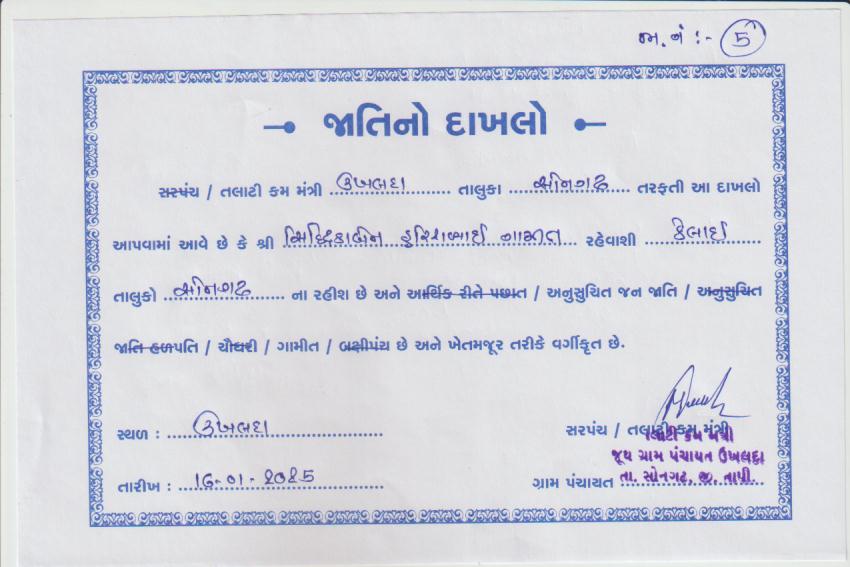 જા.નં :- 5
જાતિનો દાખલો
સરપંચ / તલાટી કમ મંત્રી ઉખલદા તાલુકા સોનગઢ તરફતી આ દાખલો
આપવામાં આવે છે કે શ્રી સિધ્ધિકાબેન હરિશભાઈ ગામીત રહેવાશી કેલાઈ
તાલુકો સોનગઢ ના રહીશ છે અને આર્થિક રીતે પછાત / અનુસુચિત જન જાતિ / અનુસુચિત
જાતિ હળપતિ / ચૌધરી / ગામીત / બક્ષીપંચ છે અને ખેતમજૂર તરીકે વર્ગીકૃત છે.
સ્થળ : ઉખલદા
સરપંચ / તલાટી કમ મંત્રી
તલાટી કમ મંત્રી
જૂથ ગ્રામ પંચાયત ઉખલદા
તારીખ : 16-01-2025
ગ્રામ પંચાયત તા. સોનગઢ, જી. તાપી.